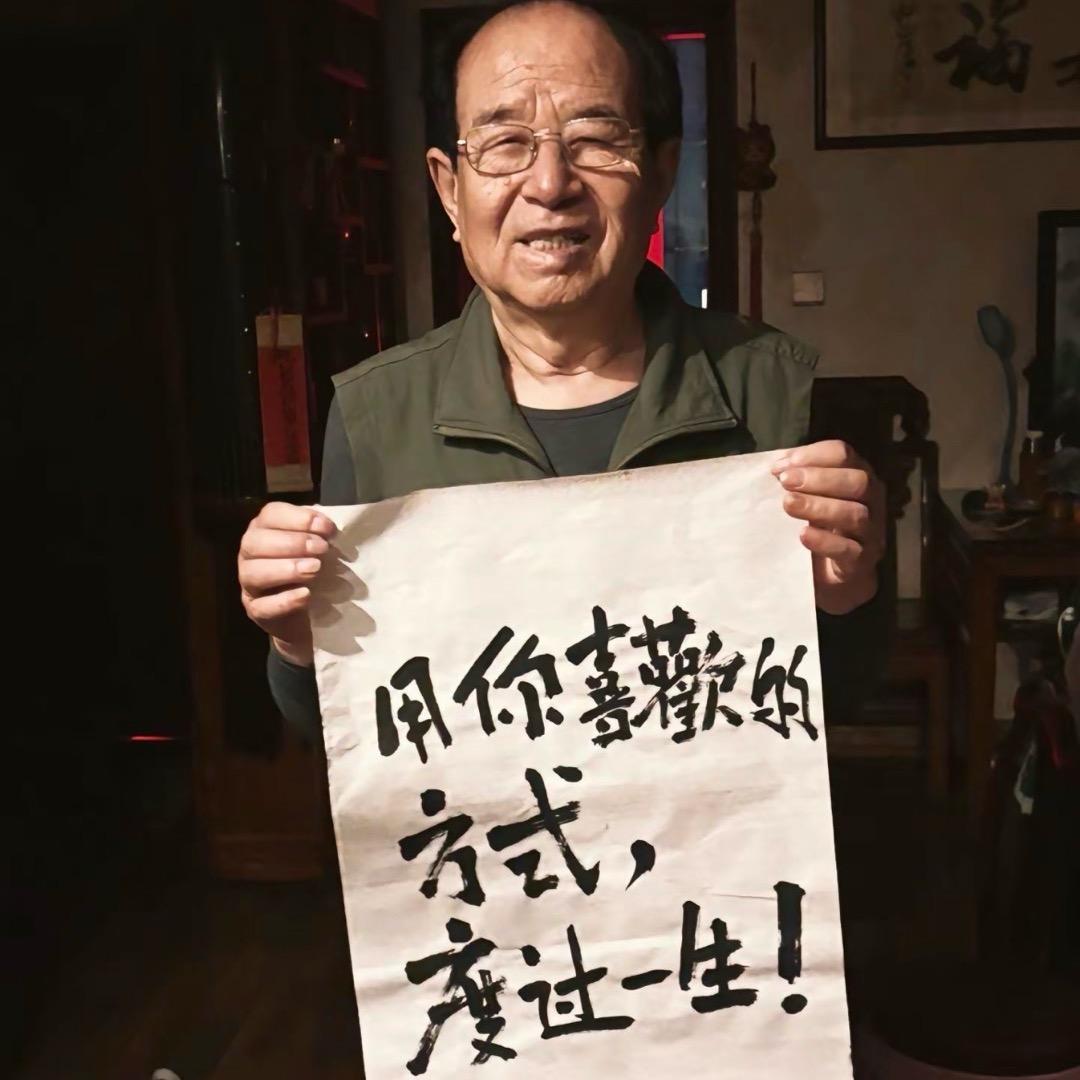 福
用你喜歡的
方式，
度过一生！